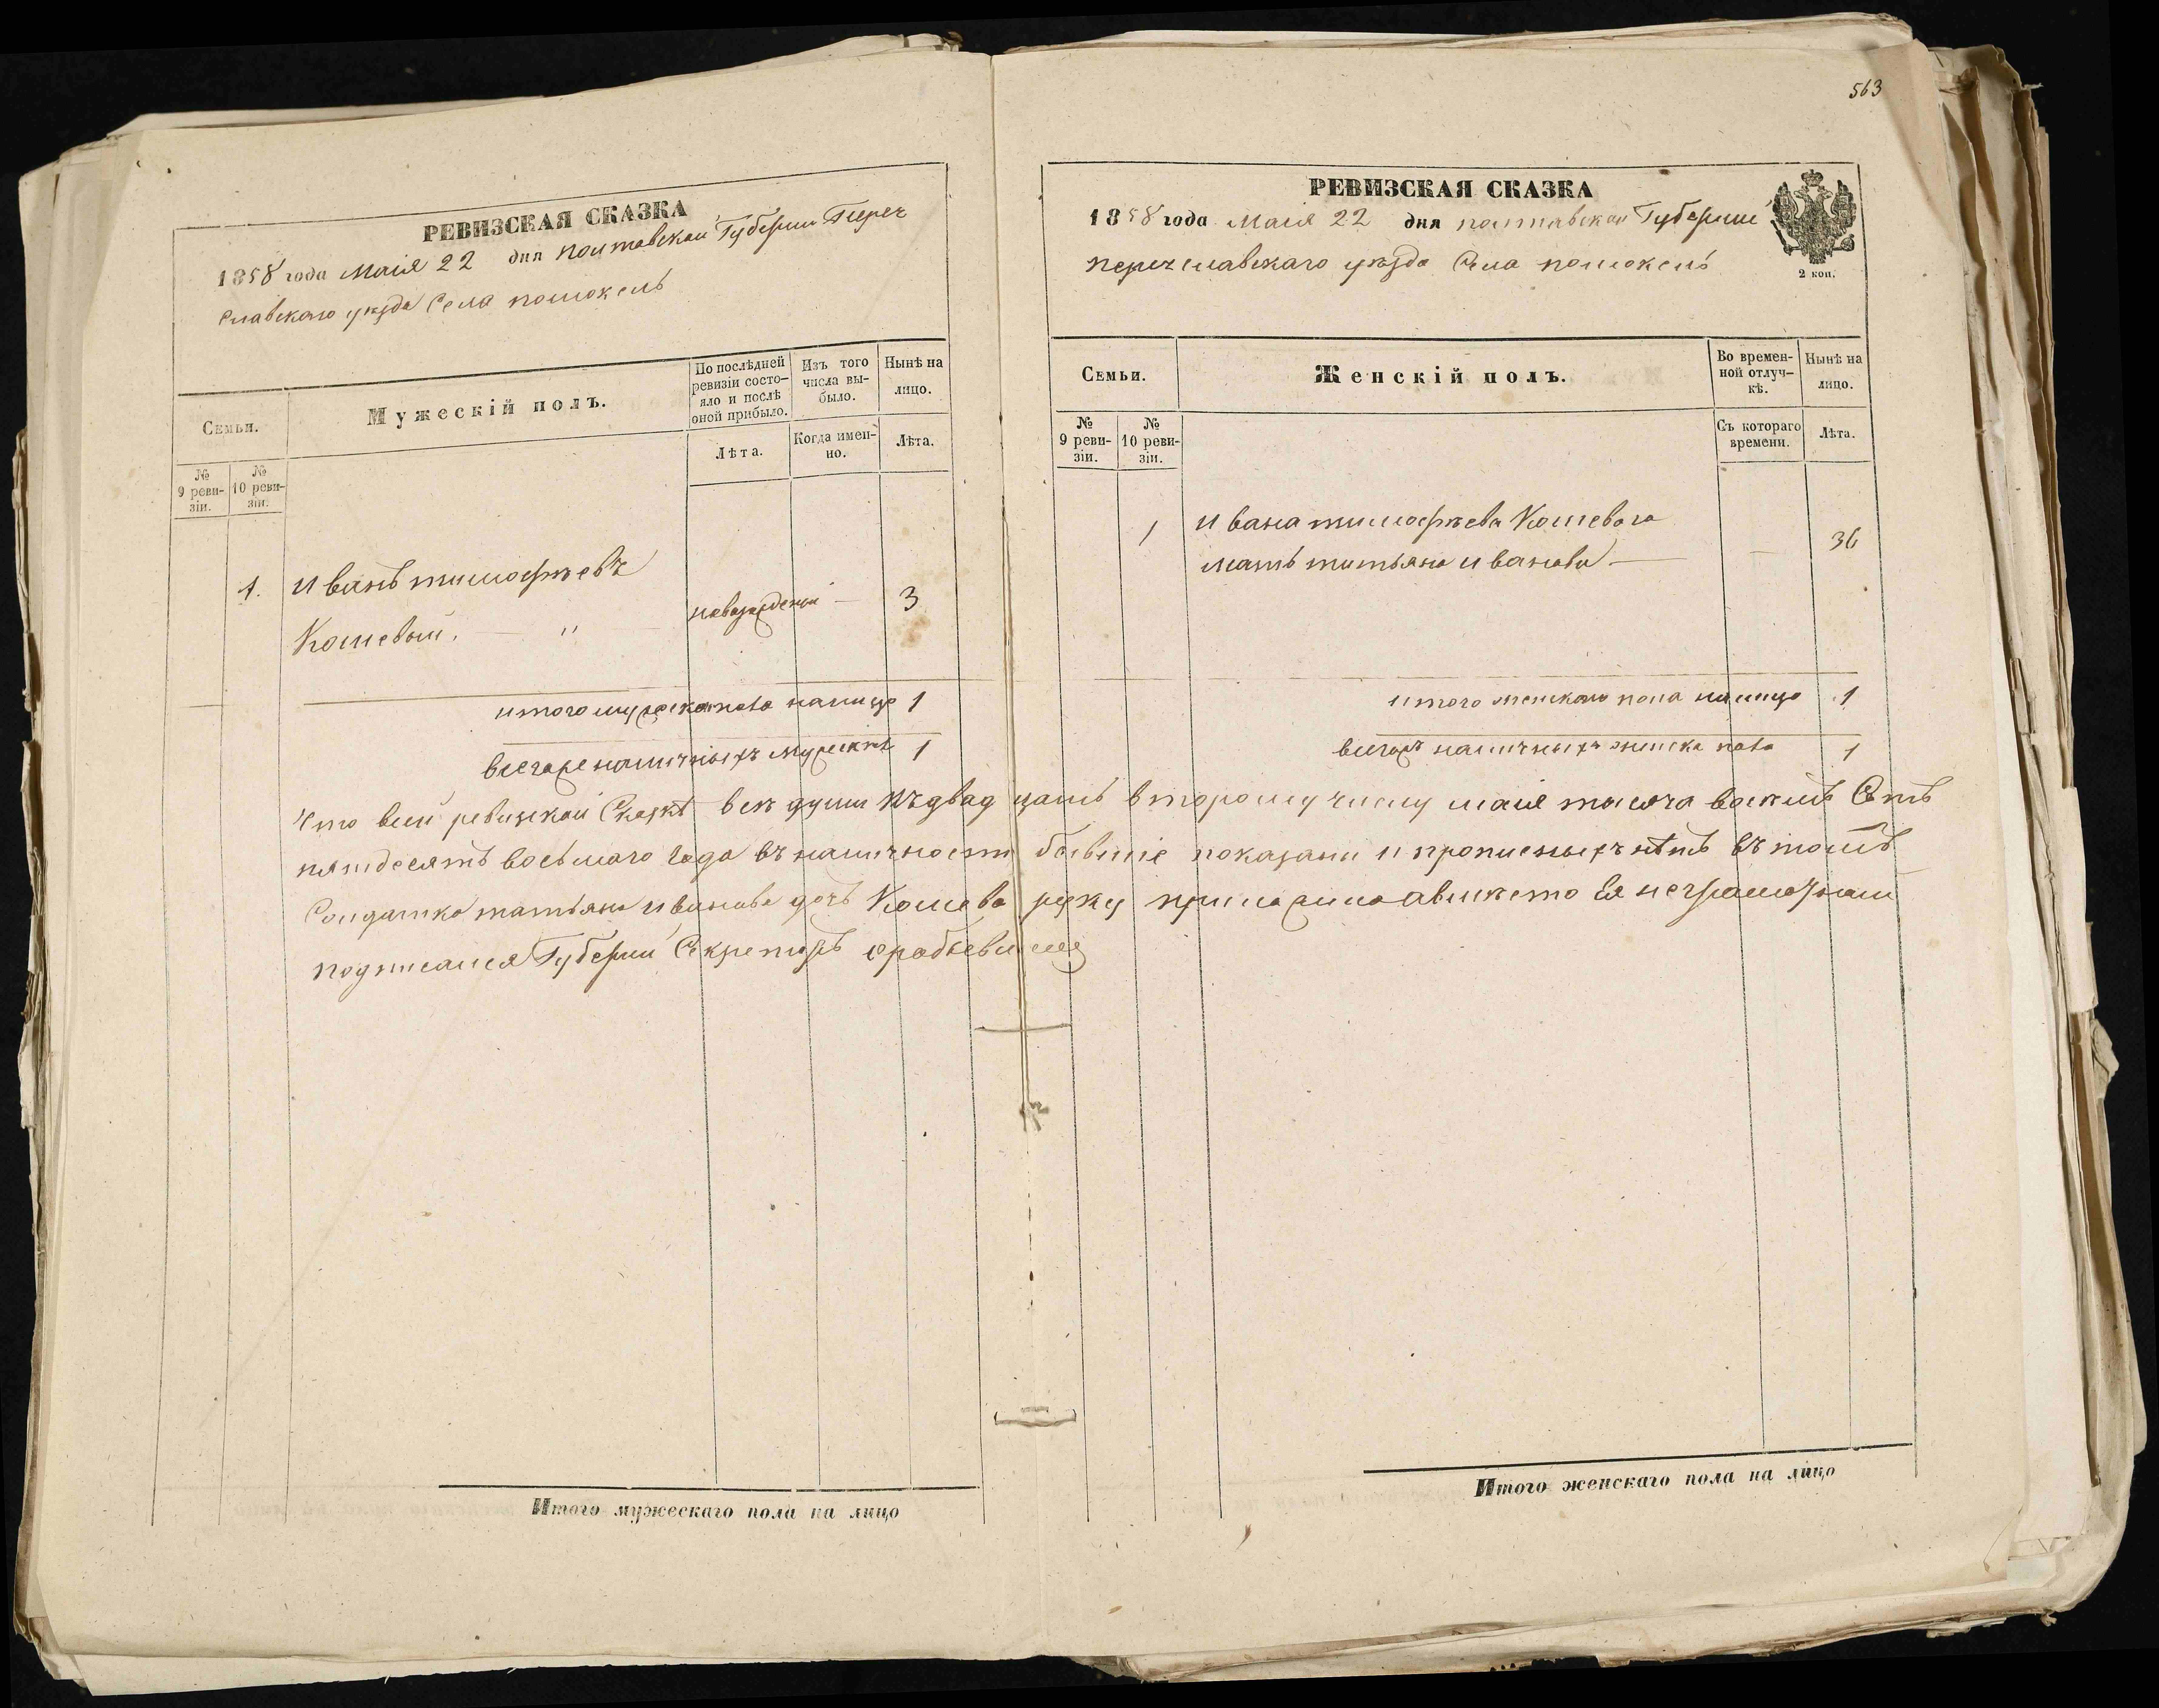 РЕВИЗСКАЯ СКАЗКА
1858 года Маія 22 дня полтавской Губерніи Переч
славскаго уезда Села помокель
Семьи.
Мужескій полъ.
По послѣдней ревизіи состо-
яло и послѣ
оной прибыло.
Изъ того
числа вы-
было.
Нынѣ на
лицо.
Лѣта.
Когда имен-
но.
Лѣта.
№
9 реви-
зіи.
№
10 реви-
зіи.
1. Иванъ тимофеевъ
Кошевый. — " — новорожденъ — 3
итого мужеска пола налицо 1
всегоже наличныхъ мужска 1
563
РЕВИЗСКАЯ СКАЗКА
1858 года Маія 22 дня полтавской Губерніи
перечславскаго уезда Села помокель
2 коп.
Семьи.
Женскій полъ.
Во времен-
ной отлуч-
кѣ.
Нынѣ на
лицо.
№
9 реви-
зіи.
№
10 реви-
зіи.
Съ котораго
времени.
Лѣта.
1 Ивана тимофеева Кошевого
мать татьяна иванова — — 36
итого женскаго пола налицо 1
всегожъ наличныхъ женска пола 1
Что всей ревизской Сказкѣ все души Къ двадцать второму числу маія тысяча восемь Сотъ
пятдесятъ восьмаго Года въ наличности бывшіе показаны и прописныхъ нѣтъ въ томъ
Солдатка татьяна иванова дочь Кошева руку приложила а вместо Ея неграмотной
подписался Губерній Секретарь
Итого мужескаго пола на лицо
Итого женскаго пола на лицо